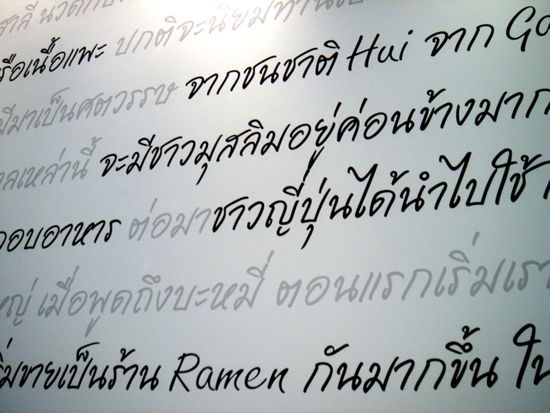 ปกติจะนิยมทานเป็
รือเนื้อแพะ จากชนชาติ Hui จาก Ga
มีมาเป็นศตวรรษ จะมีชาวมุสลิมอยู่ค่อนข้างมาก
าลเหล่านี้
กอบอาหาร ต่อมาชาวญี่ปุ่นได้นำไปใช้
หญ่ เมื่อพูดถึงบะหมี่ ตอนแรกเริ่มเรา
ริ่มขายเป็นร้าน Ramen กันมากขึ้น ใน